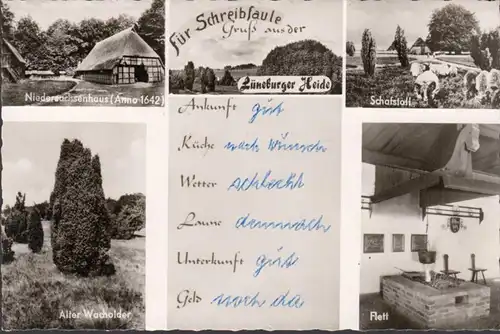 für Schreibfaule
Gruß aus der
Lüneburger Heide
Niedersachsenhaus (Anno 1642)
Schafstall
Ankunft gut
Küche nach Wunsch
Wetter schlecht
Laune demnach
Unterkunft gut
Geld noch da
Alter Wacholder
Flett